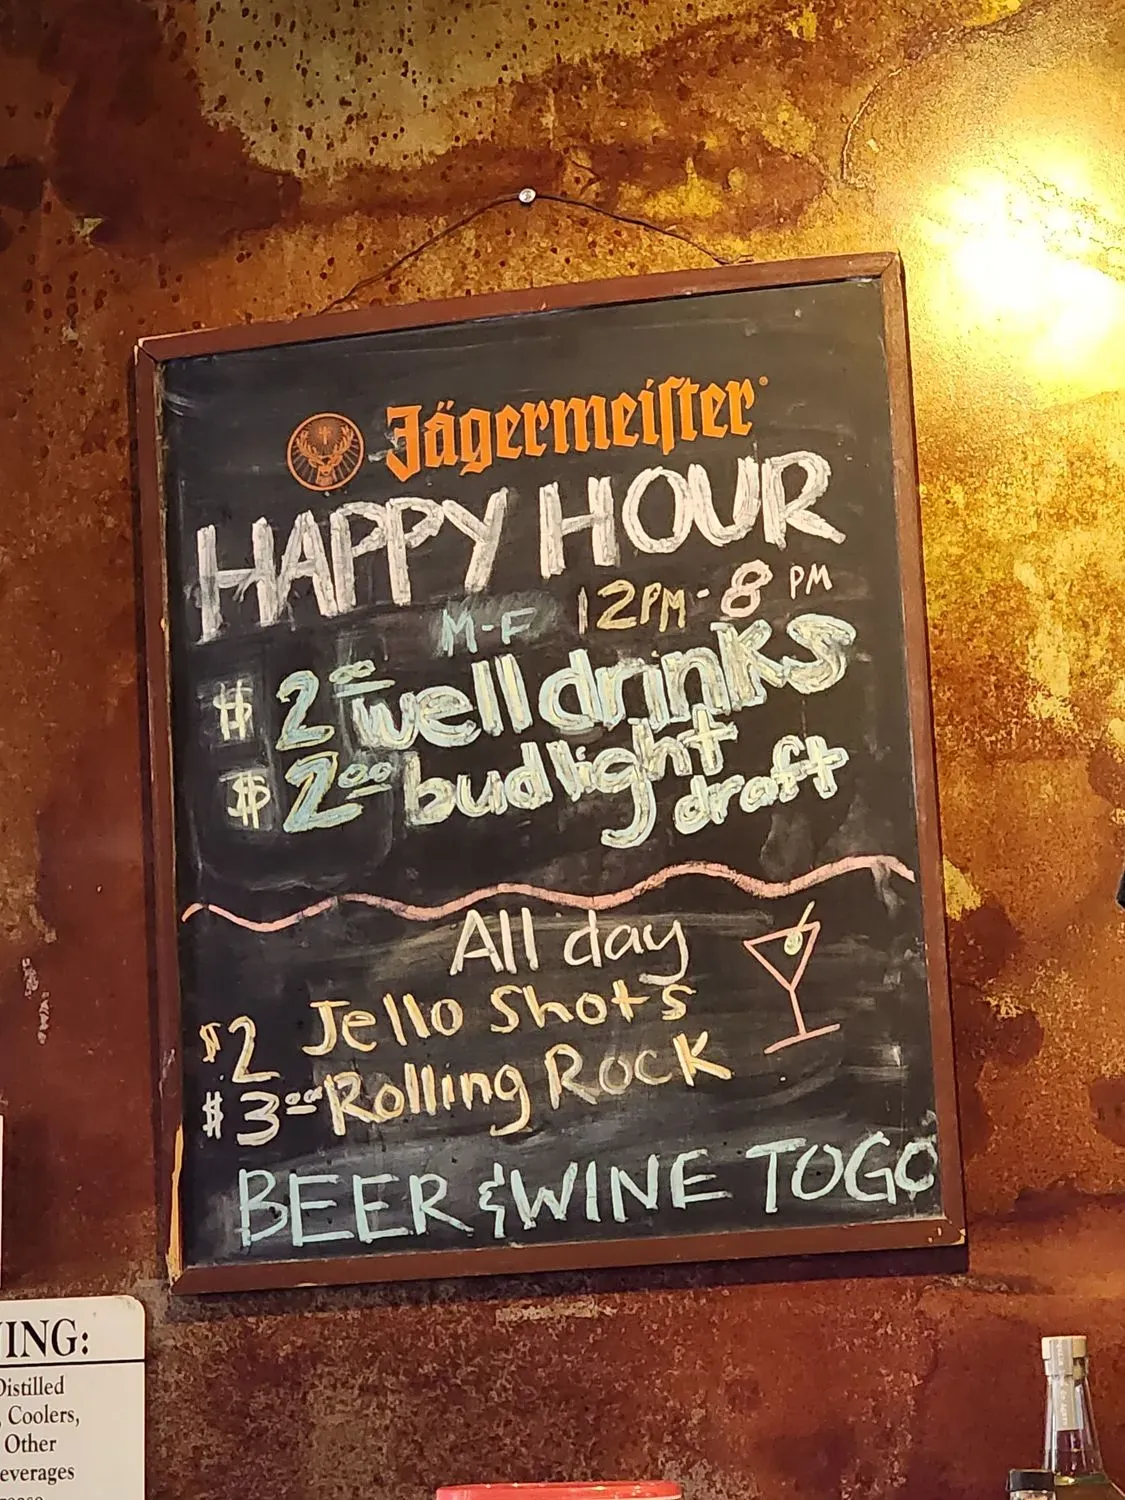 Jägermeister
HAPPY HOUR
M-F 12PM-8 PM
$2.00 well drinks
$2.00 bud light
draft
All day
$2 Jello Shots
$3.00 Rolling Rock
BEER & WINE TOGO
NING:
Distilled
, Coolers,
Other
everages